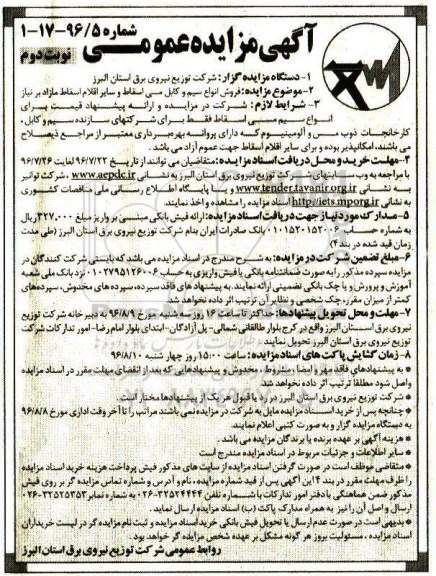 شماره ۹۶/۵-۱۷-۱
آگهی مزایده عمومی
نوبت دوم
۱- دستگاه مزایده گزار: شرکت توزیع نیروی برق استان البرز
۲- موضوع مزایده: فروش انواع سیم و کابل مسی اسقاط و سایر اقلام اسقاط مازاد بر نیاز
۳- شرایط لازم: شرکت در مزایده و ارائه پیشنهاد قیمت برای
انواع سیم مسی اسقاط فقط برای شرکتهای سازنده سیم و کابل،
کارخانجات ذوب مس و آلومینیوم که دارای پروانه بهره‌برداری معتبر از مراجع ذیصلاح
می باشند، امکانپذیر بوده و برای سایر اقلام اسقاط جهت عموم آزاد می باشد.
۴- مهلت خرید و محل دریافت اسناد مزایده: متقاضیان می توانند از تاریخ ۹۶/۷/۲۲ لغایت ۹۶/۷/۲۶
با مراجعه به وب سایتهای شرکت توزیع نیروی برق استان البرز به نشانی www.aepdc.ir، توانیر
به نشانی www.tender.tavanir.org.ir و یا پایگاه اطلاع رسانی ملی مناقصات کشوری
به نشانی http://iets.mporg.ir اسناد مزایده را مشاهده و اخذ نمایند.
۵- مدارک مورد نیاز جهت دریافت اسناد مزایده: ارائه فیش بانکی مبنی بر واریز مبلغ ۳۲۷,۰۰۰ ریال
به شماره حساب ۰۱۰۱۵۲۰۱۵۲۰۰۶ بانک صادرات ایران بنام شرکت توزیع نیروی برق استان البرز (طی مدت
زمان قید شده در بند ۴)
۶- مبلغ تضمین شرکت در مزایده: به شرح مندرج در اسناد مزایده می باشد که بایستی شرکت کنندگان در
مزایده سپرده مذکور را به صورت ضمانتنامه بانکی یا فیش واریزی به حساب ۰۱۰۲۷۹۵۱۲۶۰۰۶ نزد بانک ملی شعبه
آموزش و پرورش و یا چک بانکی تضمینی ارائه نمایند. به پیشنهاد های فاقد سپرده، سپرده های مخدوش، سپرده‌های
کمتر از میزان مقرر، چک شخصی و نظایر آن ترتیب اثر داده نخواهد شد.
۷- مهلت و محل تحویل پیشنهادها: حداکثر تا ساعت ۱۶ روز سه شنبه مورخ ۹۶/۸/۹ به دبیرخانه شرکت توزیع
نیروی برق استان البرز واقع در کرج بلوار طالقانی شمالی- پل آزادگان- ابتدای بلوار امام رضا- امور تدارکات شرکت
توزیع نیروی برق استان البرز تحویل نمایند.
۸- زمان گشایش پاکت های اسناد مزایده: ساعت ۱۵:۰۰ روز چهار شنبه ۹۶/۸/۱۰
* به پیشنهادهای فاقد مهر و امضا، مشروط، مخدوش و پیشنهادهایی که بعد از انقضای مهلت مقرر در اسناد مزایده
واصل شود مطلقا ترتیب اثر داده نخواهد شد.
* شرکت توزیع نیروی برق استان البرز در رد یا قبول هر یک از پیشنهادها مختار است.
* چنانچه پس از خرید اسناد مزایده مایل به شرکت در مزایده نمی باشند مراتب را تا آخر وقت اداری مورخ ۹۶/۸/۸
به دستگاه مزایده گزار و به صورت کتبی اعلام نمایند.
* هزینه آگهی بر عهده برنده یا برندگان مزایده می باشد.
* سایر اطلاعات و جزئیات مربوط در اسناد مزایده مندرج است
* متقاضی موظف است در صورت گرفتن اسناد مزایده از سایت های مذکور فیش پرداخت هزینه خرید اسناد مزایده
را ظرف مهلت مقرر در بند ۴ این آگهی پس از قید شماره مزایده، نام و آدرس و شماره تماس مزایده گر بر روی فیش
مذکور ضمن هماهنگی با دفتر امور تدارکات با شماره تلفن ۳۲۵۲۴۴۴۴-۰۲۶ به شماره نمابر ۳۲۵۲۵۳۵۳-۰۲۶
ارسال و اصل آن را نیز به همراه مدارک پاکت (ب) اسناد مزایده ارسال نماید.
* بدیهی است در صورت عدم ارسال یا تحویل فیش بانکی خرید اسناد مزایده و ثبت نام مزایده گر در لیست خریداران
اسناد مزایده، مسئولیت بروز هر گونه مشکل بر عهده شخص مزایده گر خواهد بود.
روابط عمومی شرکت توزیع نیروی برق استان البرز